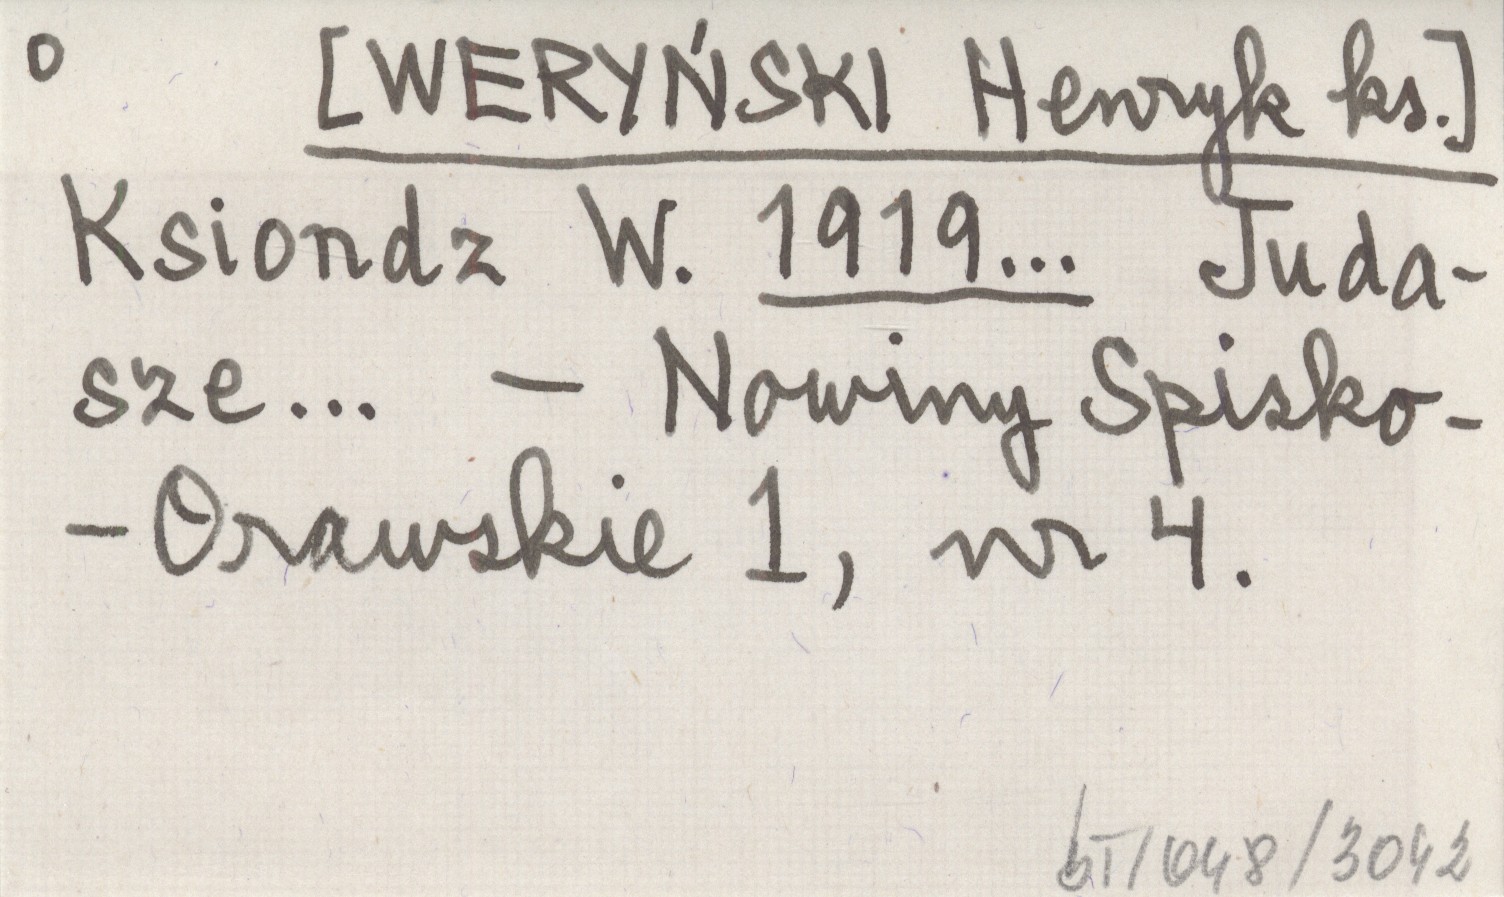 o [WERYŃSKI Henryk ks.]
Ksiondz W. 1919... Juda-
sze... - Nowiny Spisko-
-Orawskie 1, nr 4.
bT/648/3042